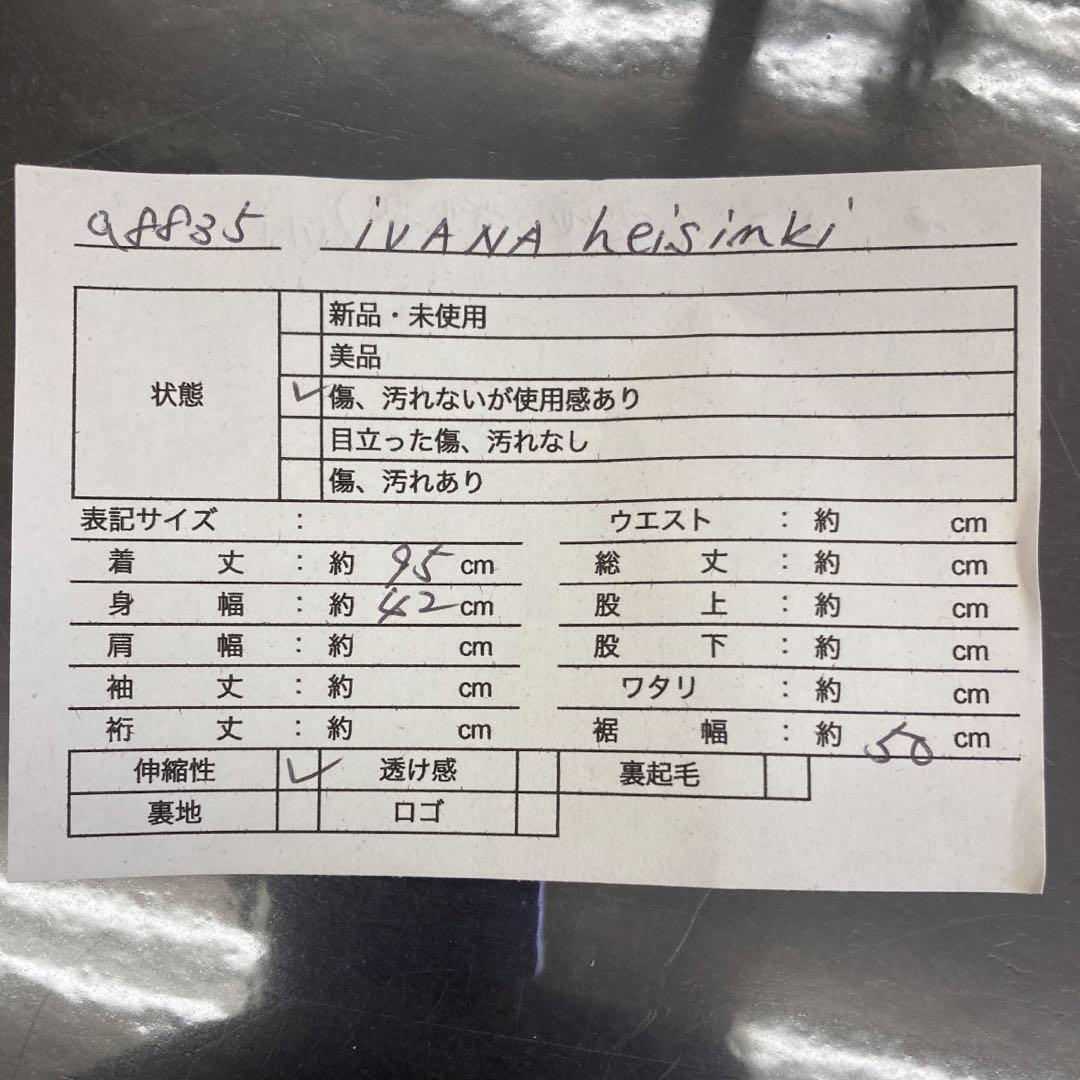 a8835 iVANA heisinki
状態
新品・未使用
美品
傷、汚れないが使用感あり
目立った傷、汚れなし
傷、汚れあり
表記サイズ : ウエスト : 約 cm
着丈 : 約 95 cm 総丈 : 約 cm
身幅 : 約 42 cm 股上 : 約 cm
肩幅 : 約 cm 股下 : 約 cm
袖丈 : 約 cm ワタリ : 約 cm
裄丈 : 約 cm 裾幅 : 約 50 cm
伸縮性 ✓ 透け感 裏起毛
裏地 ロゴ